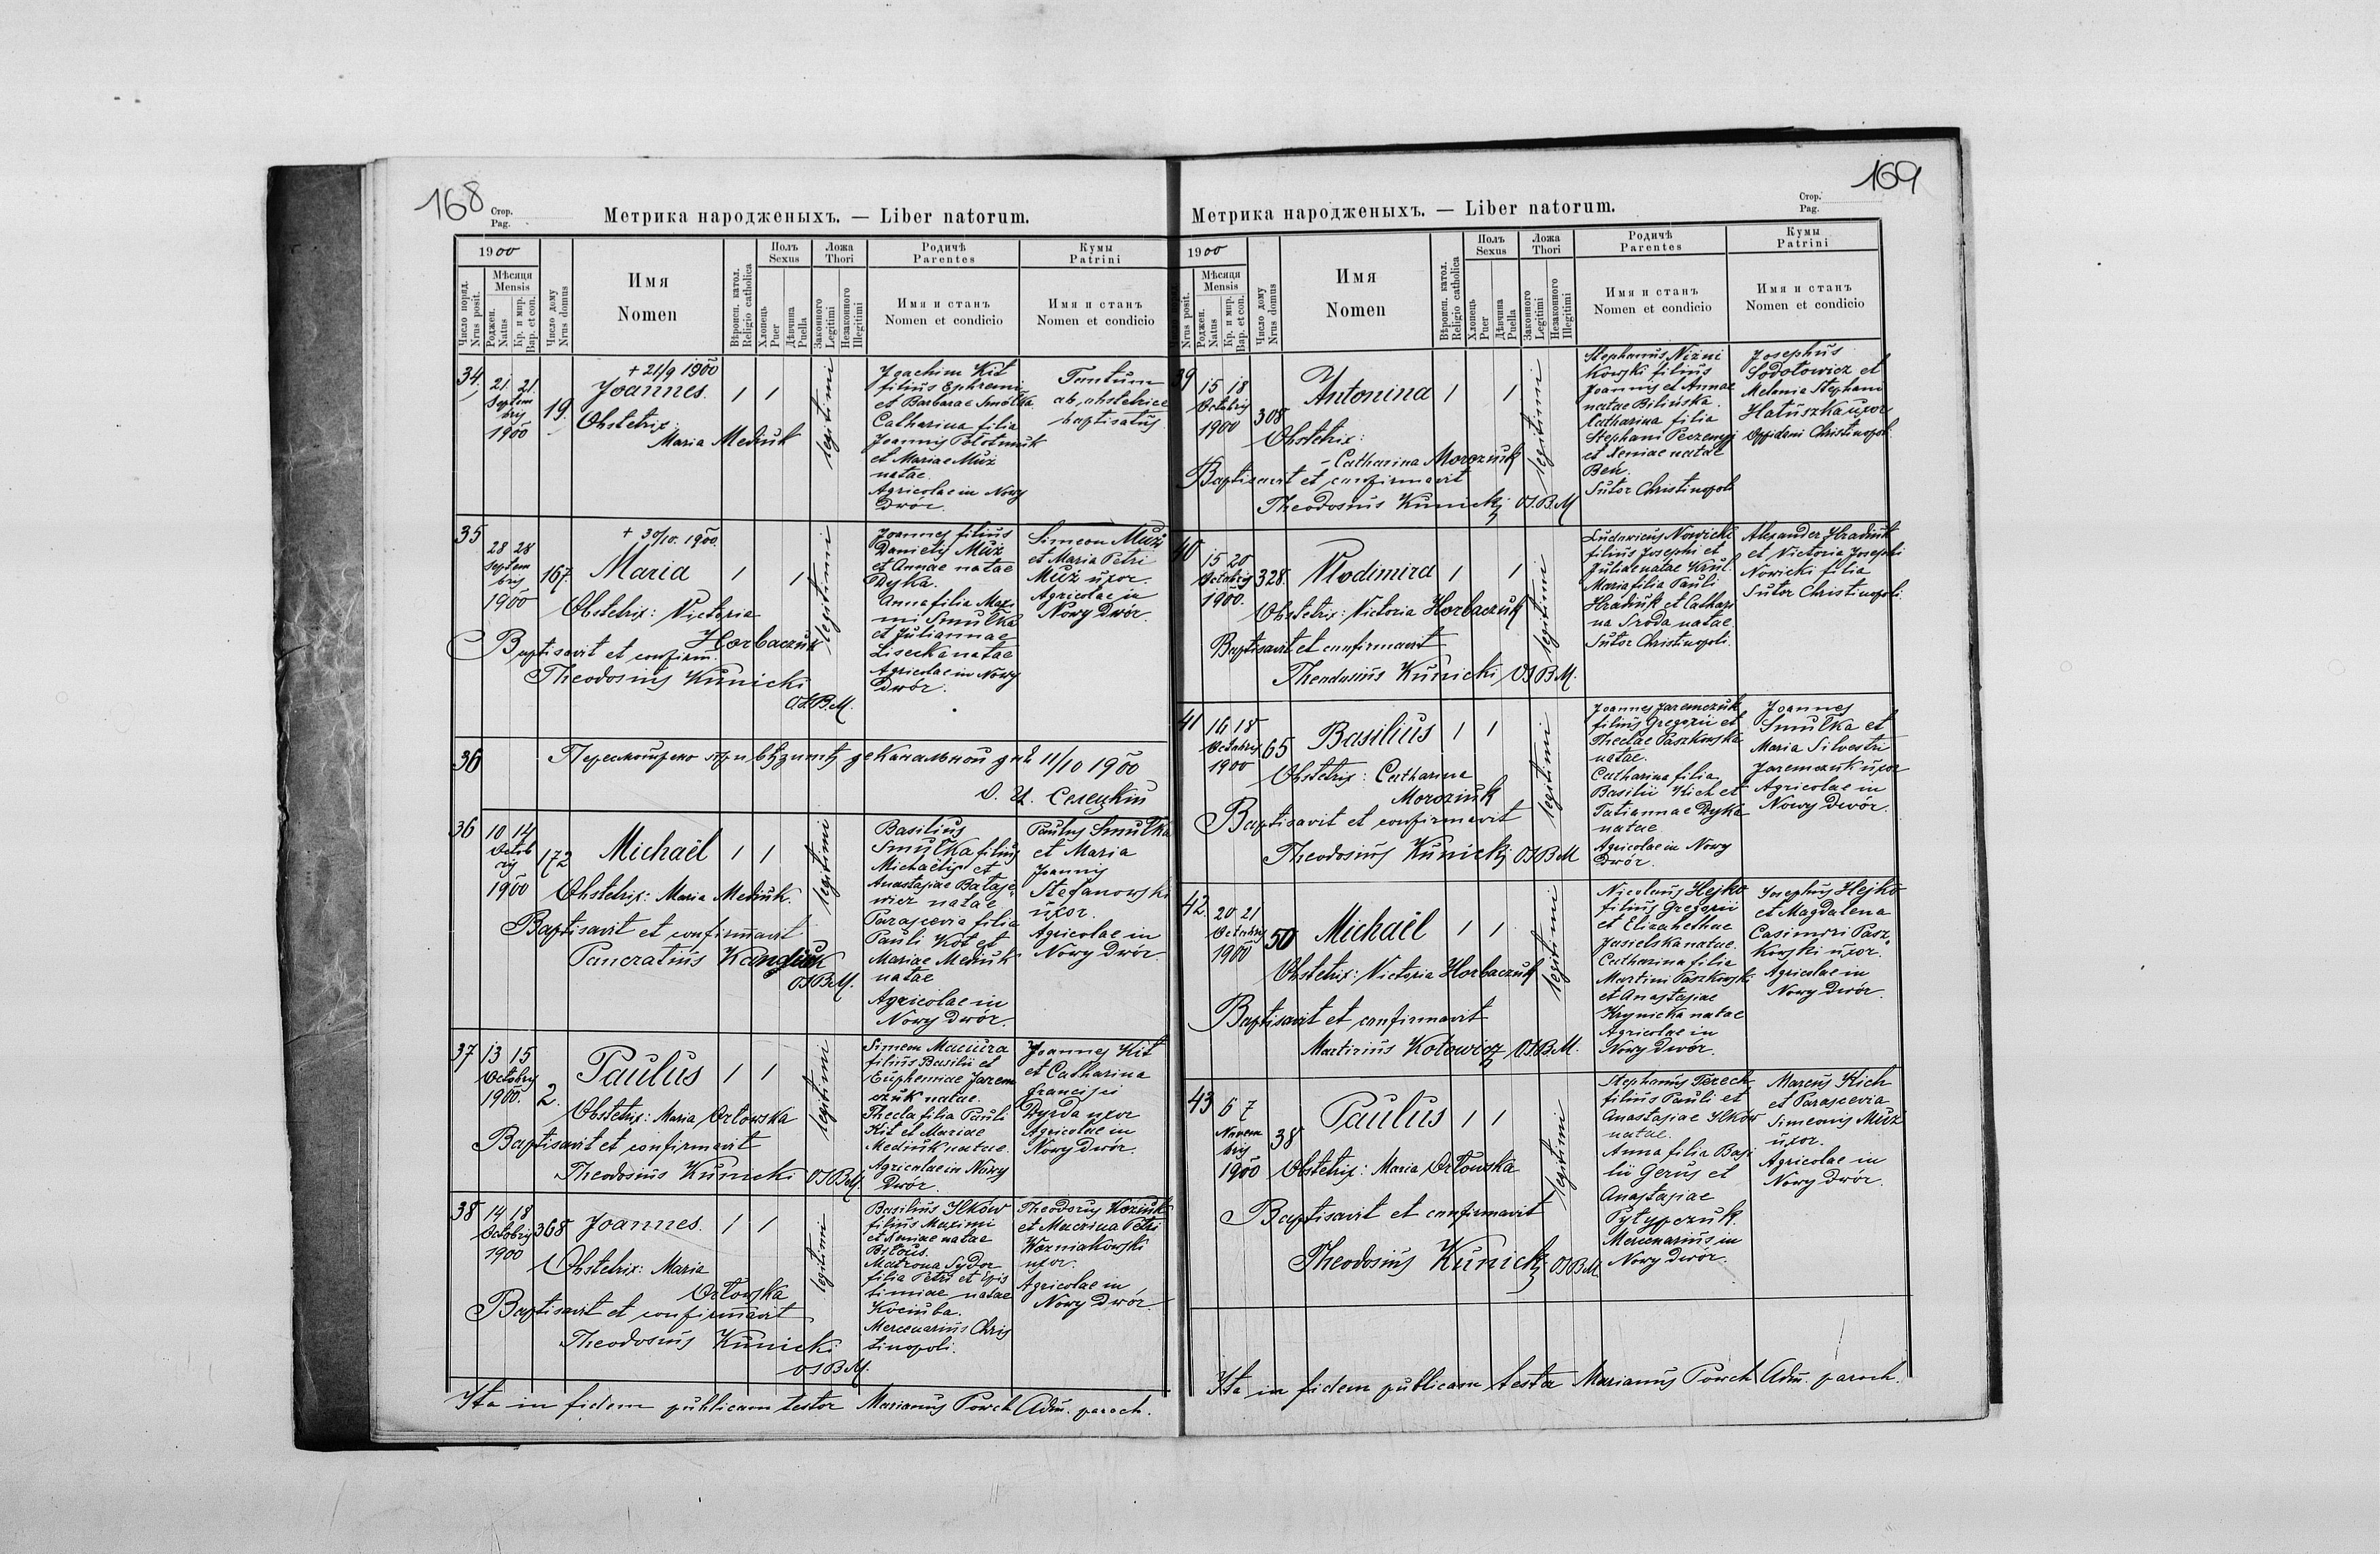 168
Стор.
Pag.
Метрика народженыхъ. — Liber natorum.
1900
Число поряд.
Nrus posit.
Мѣсяця
Mensis
Роджен.
Natus
Кр. и мир.
Bap. et con.
Число дому
Nrus domus
Имя
Nomen
Вѣроисп. катол.
Religio catholica
Полъ
Sexus
Хлопець
Puer
Дѣвчина
Puella
Ложа
Thori
Законного
Legitimi
Незаконного
Illegitimi
Родичѣ
Parentes
Имя и станъ
Nomen et condicio
Кумы
Patrini
Имя и станъ
Nomen et condicio
34.
21 21
Septem
bris
1900
19.
+ 21/9 1900
Joannes.
1 1
Obstetrix:
Maria Mediuk
legitimi
Joachim Kit
filius Ephremi
et Barbarae Smolka
Catharina filia
Joannis Połotniuk
et Mariae Muż
natae.
Agricolae in Nowy
Dwór.
Tantum
ab obstetrice
baptisatus
35
28 28
Septem
bris
1900
167.
+ 30/10. 1900.
Maria
1 1
Obstetrix: Victoria
Horbaczuk
Baptisavit et confirm.
Theodosius Kunicki
OSBM.
legitimi
Joannes filius
Danielis Muż
et Annae natae
Dyka.
Anna filia Maxi
mi Smulka
et Juliannae
Lisecka natae
Agricolae in Nowy
Dwór.
Simeon Muż
et Maria Petri
Muż uxor.
Agricolae in
Nowy Dwór.
36
Пересмотрено при вѣзитѣ деканальной днѣ 11/10 1900
36
10 14
Octob
ris
1900
172
Michaël
1 1
Obstetrix: Maria Mediuk.
Baptisavit et confirmavit
Pancratius Kandiuk
OSBM.
legitimi
Basilius
Smulka filius
Michaëlis et
Anastasiae Bataje
wicz natae
Parascevia filia
Pauli Kot et
Mariae Mediuk
natae
Agricolae in
Nowy Dwór.
Paulus Smulka
et Maria
Joannis
Stefanowski
uxor.
Agricolae in
Nowy Dwór.
37
13 15
Octobris
1900.
2.
Paulus
1 1
Obstetrix: Maria Orłowska
Baptisavit et confirmavit
Theodosius Kunicki OSBM.
legitimi
Simeon Maciura
filius Basilii et
Euphemiae Jarem
czuk natae.
Thecla filia Pauli
Kit et Mariae
Mediuk natae.
Agricolae in Nowy
Dwór.
Joannes Kit
et Catharina
Francisci
Dyrda uxor
Agricolae in
Nowy Dwór.
38
14 18
Octobris
1900
368
Joannes.
1 1
Obstetrix: Maria
Orłowska
Baptisavit et confirmavit
Theodosius Kunicki
OSBM.
legitimi
Basilius Ilków
filius Maximi
et Xeniae natae
Biłous.
Matrona Sydor
filia Petri et Epis
timiae natae
Kociuba.
Mercenarius Chris
tinopoli.
Theodorus Koziuk
et Macrina Petri
Wozniakowski
uxor.
Agricolae in
Nowy Dwór.
Ita in fidem publicam testor Marianus Powch Adm. paroch.
169
Стор.
Pag.
Метрика народженыхъ. — Liber natorum.
1900
Nrus posit.
Мѣсяця
Mensis
Роджен.
Natus
Кр. и мир.
Bap. et con.
Число дому
Nrus domus
Имя
Nomen
Вѣроисп. катол.
Religio catholica
Полъ
Sexus
Хлопець
Puer
Дѣвчина
Puella
Ложа
Thori
Законного
Legitimi
Незаконного
Illegitimi
Родичѣ
Parentes
Имя и станъ
Nomen et condicio
Кумы
Patrini
Имя и станъ
Nomen et condicio
39
15 18
Octobris
1900
308
Antonina
1 1
Obstetrix:
Catharina Moroziuk
Baptisavit et confirmavit
Theodosius Kunicki OSBM
legitimi
Stephanus Nizni
kowski filius
Joannis et Annae
natae Bilińska.
Catharina filia
Stephani Peczenyj
et Xeniae natae
Beń.
Sutor Christinopoli
Josephus
Sodołowicz et
Melania Stephani
Hałuszka uxor
Oppidani Christinopoli.
40
15 20
Octobris
1900.
328.
Wlodimira
1 1
Obstetrix: Victoria Horbaczuk
Baptisavit et confirmavit
Theodosius Kunicki OSBM.
legitimi
Ludovicus Nowicki
filius Josephi et
Juliae natae Król.
Maria filia Pauli
Hradiuk et Cathari
na Sroda natae.
Sutor Christinopoli.
Alexander Hradiuk
et Victoria Josephi
Nowicki filia
Sutor Christinopoli.
41
16 18
Octobris
1900
65
Basilius
1 1
Obstetrix: Catharina
Moroziuk
Baptisavit et confirmavit
Theodosius Kunicki OSBM
legitimi
Joannes Jaremczuk
filius Gregorii et
Theclae Paszkowska
natae.
Catharina filia
Basilii Hich et
Tatiannae Dyka
natae
Agricolae in Nowy
Dwór.
Joannes
Smulka et
Maria Silvestri
Jaremczuk uxor
Agricolae in
Nowy Dwór.
42.
20 21
Octobris
1900
50
Michaël
1 1
Obstetrix: Victoria Horbaczuk
Baptisavit et confirmavit
Martirius Kotowicz OSBM.
legitimi
Nicolaus Hejko
filius Gregorii
et Elizabethae
Jasielska natae.
Catharina filia
Martini Paszkowski
et Anastasiae
Krynicka natae
Agricolae in
Nowy Dwór.
Josephus Hejko
et Magdalena
Casimiri Pasz
kowski uxor.
Agricolae in
Nowy Dwór.
43
6 7
Novem
bris
1900
38
Paulus
1 1
Obstetrix: Maria Orłowska
Baptisavit et confirmavit
Theodosius Kunicki OSBM
legitimi
Stephanus Terech
filius Pauli et
Anastasiae Ilków
natae.
Anna filia Basi
lii Gerus et
Anastasiae
Pyłypczuk.
Mercenarius in
Nowy Dwór.
Marcus Hich
et Parascevia
Simeonis Muż
uxor.
Agricolae in
Nowy Dwór.
Ita in fidem publicam testor Marianus Powch Adm. paroch.